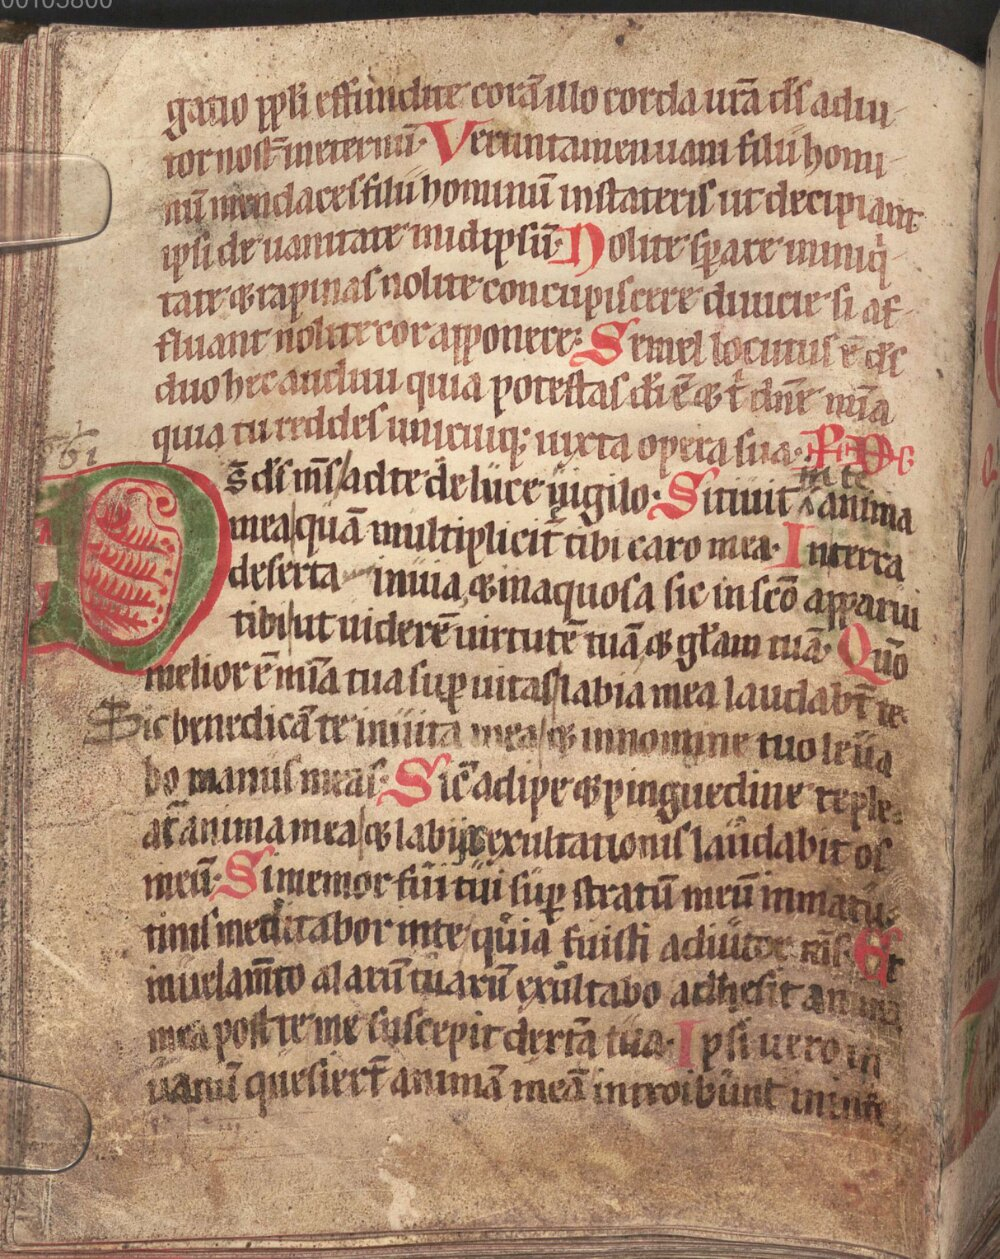 00105800
gatio ppl̄i effundite corā illo corda ur̄a ds̄ adiu-
tor nost̄ in eternū. Veruntamen uani filii homi-
nū mendaces filii hominū in stateris ut decipiant
ipsi de uanitate in idipsū. Nolite sp̄are in iniqⁱ-
tate & rapinas nolite concupiscere diuicie si af-
fluant nolite cor apponere. Semel locutus ē ds̄
duo hec audiui quia potestas dī ē & t̄ dn̄e mīa
quia tu reddes unicuiqꝫ iuxta opera sua.
61
D s̄ ds̄ ms̄ ad te de luce uigilo. Sitiuit in te anima
mea quā multiplicit̄ tibi caro mea. In terra
deserta inuia & inaquosa sic in scō apparui
tibi ut uiderē uirtutē tuā & gl̄am tuā. Qūo
melior ē mīa tua sup̄ uitas labia mea laudabt̄ te.
Sic benedicā te in uita mea & in nomine tuo leua
bo manus meas. Sic̄ adipe & pinguedine reple-
at̄ anima mea & labiis exultationis laudabit os
meū. Si memor fui tui sup̄ stratū meū in matu-
tinis meditabor in te quia fuisti adiutor ms̄. Et
in uelam̄to alarū tuarū exultabo adhesit anima
mea post te me suscepit dext̄a tua. Ipsi uero in
uanū quesiert̄ animā meā introibunt in infe